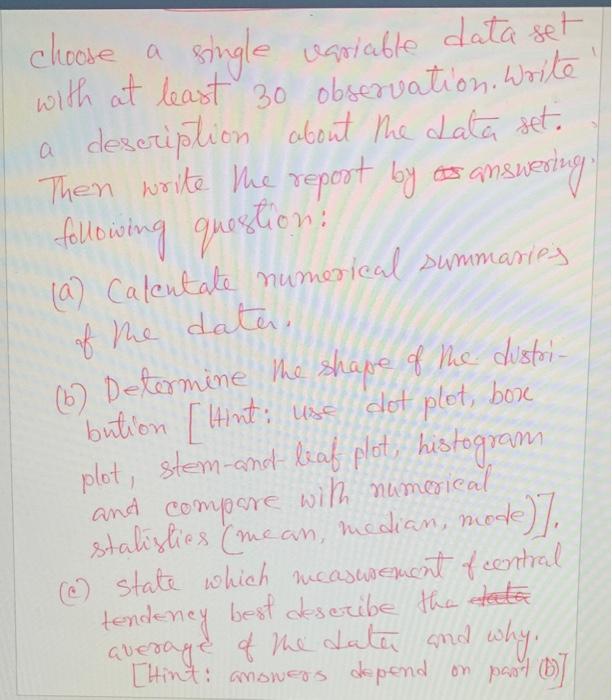 choose a single variable data set
with at least 30 observation. Write
a description about the data set.
Then write the report by as answering
following question:
(a) Calculate numerical summaries
of the data.
(b) Determine the shape of the distri-
bution [Hint: use dot plot, box
plot, stem-and-leaf plot, histogram
and compare with numerical
statistics (mean, median, mode)].
(c) state which measurement of central
tendency best describe the data
average of the data and why.
[Hint: answers depend on part (b)]